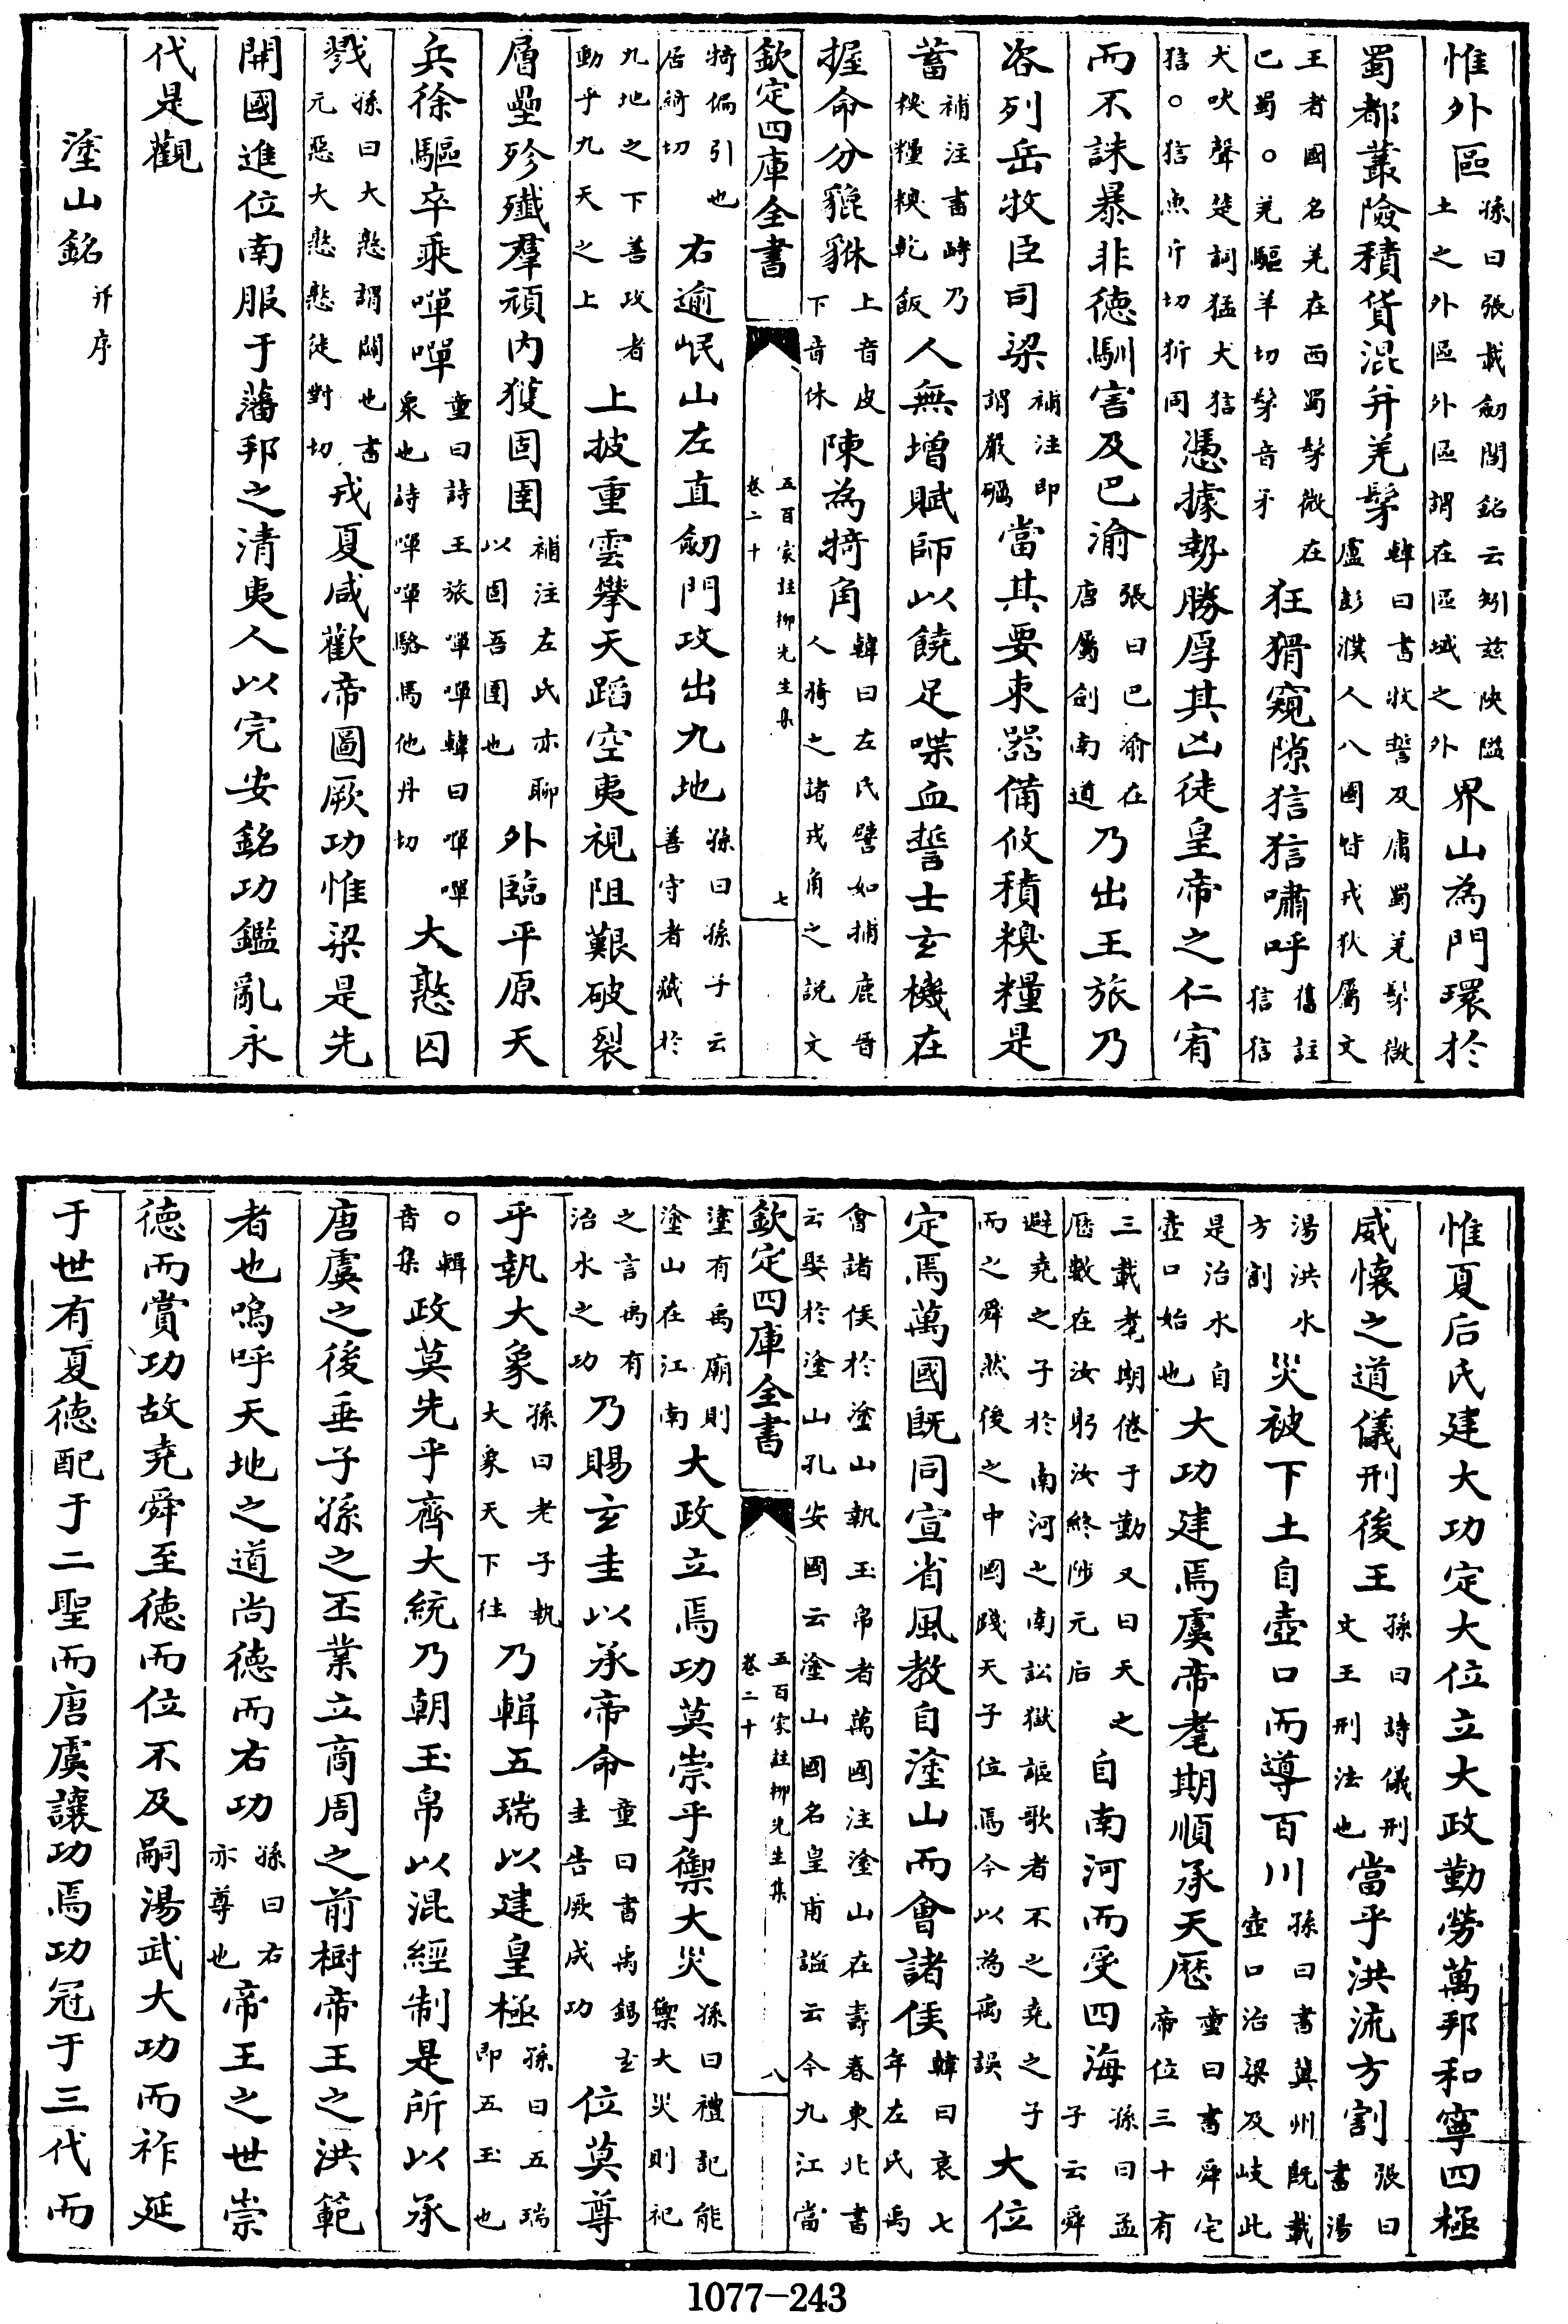 惟外區孫曰張載劒閣銘云矧兹陜隘土之外區外區謂在區域之外界山為門環於
蜀都叢險積貨混并羌髳韓曰書牧誓及庸蜀羌髳微盧彭濮人八國皆戎狄屬文
王者國名羌在西蜀髳微在巴蜀○羌驅羊切髳音矛狂猾窺隙狺狺嘯呼舊註狺狺
犬吠聲楚詞猛犬狺狺○狺魚斤切㹞同憑據勢勝厚其凶徒皇帝之仁宥
而不誅暴非德馴害及巴渝張曰巴渝在唐屬劍南道乃出王旅乃
咨列岳牧臣司梁補注即謂嚴礪當其要束器備攸積糗糧是
蓄補注書峙乃糗糧糗乾飯人無增賦師以饒足喋血誓士玄機在
握命分貔貅上音皮下音休陳為犄角韓曰左氏譬如捕鹿晉人犄之諸戎角之説文
欽定四庫全書 五百家註柳先生集卷二十 七
犄偏引也居綺切右逾岷山左直劒門攻出九地孫曰孫子云善守者藏於
九地之下善攻者動乎九天之上上披重雲攀天蹈空夷視阻艱破裂
層壘殄殲羣頑内獲固圉補注左氏亦聊以固吾圉也外臨平原天
兵徐驅卒乘嘽嘽童曰詩王旅嘽嘽韓曰嘽嘽衆也詩嘽嘽駱馬他丹切大憝囚
戮孫曰大憝謂闢也書元惡大憝憝徒對切戎夏咸歡帝圖厥功惟梁是先
開國進位南服于藩邦之清夷人以完安銘功鑑亂永
代是觀
塗山銘并序
惟夏后氏建大功定大位立大政勤勞萬邦和寧四極
威懷之道儀刑後王孫曰詩儀刑文王刑法也當乎洪流方割張曰書湯
湯洪水方割災被下土自壺口而導百川孫曰書冀州既載壺口治梁及岐此
是治水自壺口始也大功建焉虞帝耄期順承天歷童曰書舜宅帝位三十有
三載耄期倦于勤又曰天之歷數在汝躬汝終陟元后自南河而受四海孫曰孟子云舜
避堯之子於南河之南訟獄謳歌者不之堯之子而之舜然後之中國踐天子位焉今以為禹誤大位
定焉萬國既同宣省風教自塗山而會諸侯韓曰哀七年左氏禹
會諸侯於塗山執玉帛者萬國注塗山在壽春東北書云娶於塗山孔安國云塗山國名皇甫謐云今九江當
欽定四庫全書 五百家註柳先生集卷二十 八
塗有禹廟則塗山在江南大政立焉功莫崇乎禦大災孫曰禮記能禦大災則祀
之言禹有治水之功乃賜玄圭以承帝命童曰書禹錫玄圭告厥成功位莫尊
乎執大象孫曰老子執大象天下往乃輯五瑞以建皇極孫曰五瑞即五玉也
○輯音集政莫先乎齊大統乃朝玉帛以混經制是所以承
唐虞之後垂子孫之丕業立商周之前樹帝王之洪範
者也嗚呼天地之道尚德而右功孫曰右亦尊也帝王之世崇
德而賞功故堯舜至德而位不及嗣湯武大功而祚延
于世有夏德配于二聖而唐虞讓功焉功冠于三代而
1077-243